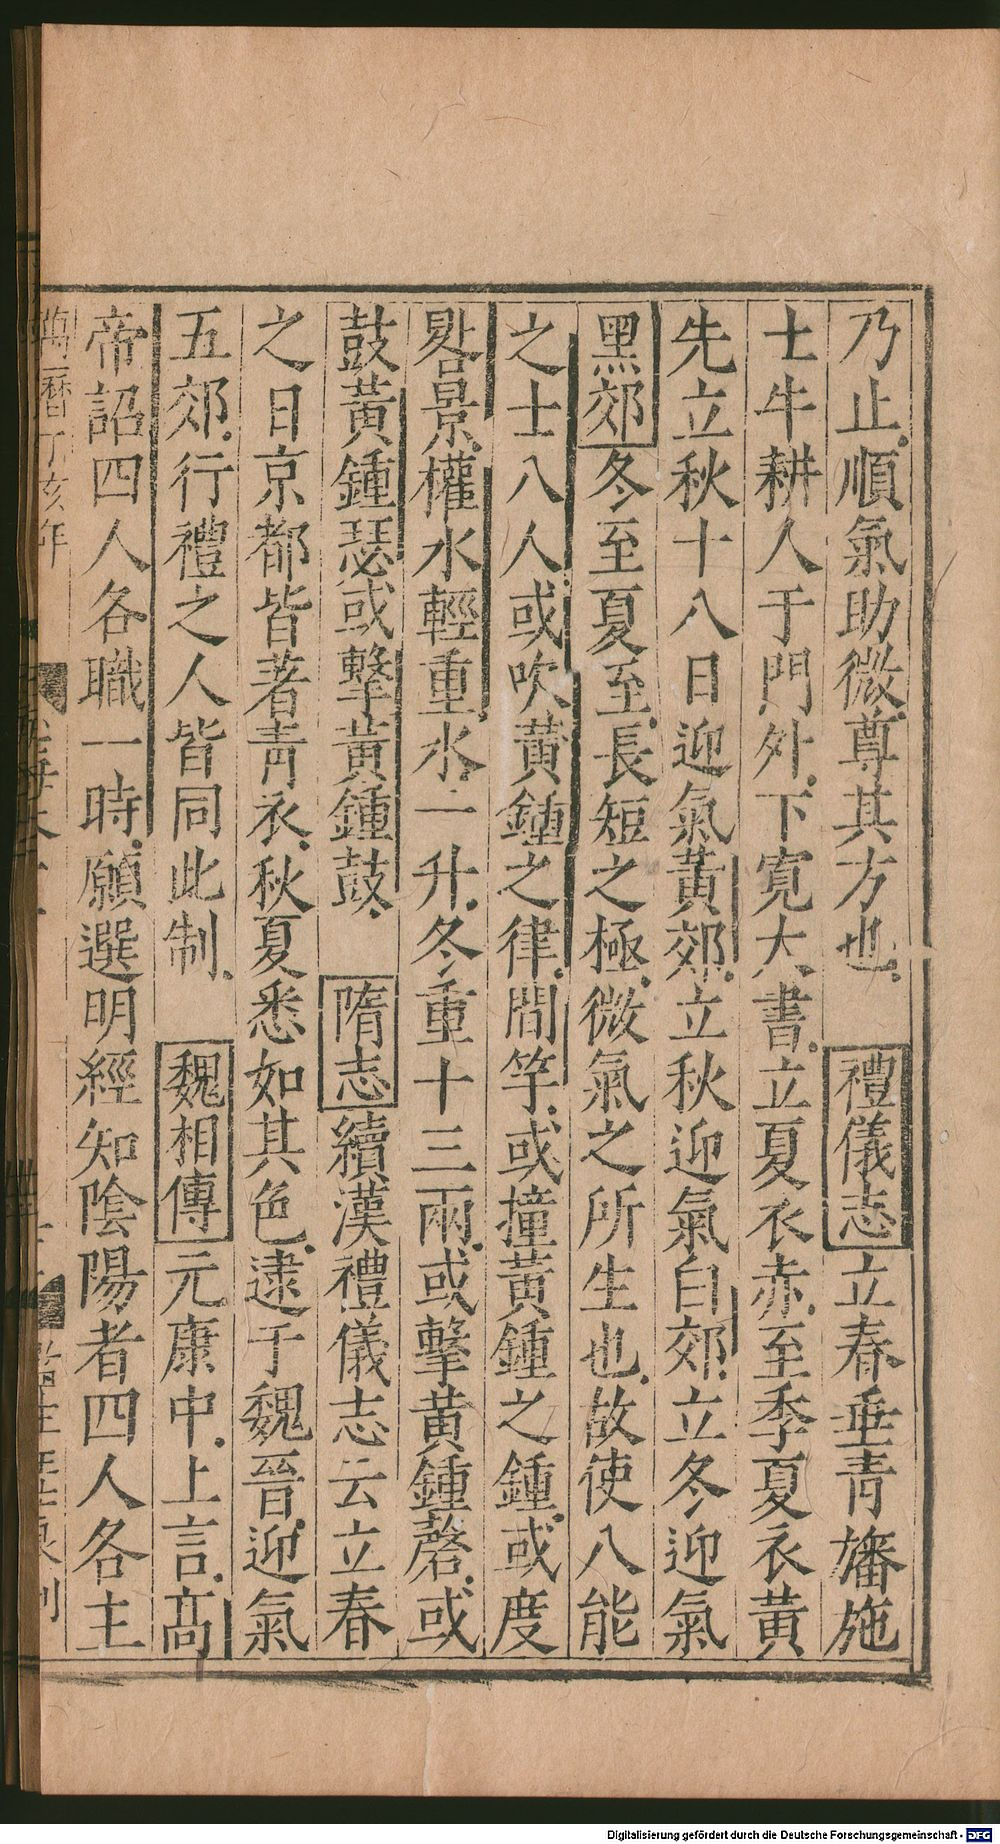 乃止順氣助微尊其方也　禮儀志立春垂青旛施
士牛耕人于門外下寛大書立夏衣赤至季夏衣黃
先立秋十八日迎氣黃郊立秋迎氣白郊立冬迎氣
黑郊冬至夏至長短之極微氣之所生也故使八能
之士八人或吹黃鍾之律間竽或撞黃鍾之鍾或度
晷景權水輕重水一升冬重十三兩或擊黃鍾磬或
鼓黃鍾瑟或擊黃鍾鼓　隋志續漢禮儀志云立春
之日京都皆著青衣秋夏悉如其色逮于魏晉迎氣
五郊行禮之人皆同此制　魏相傳元康中上言高
帝詔四人各職一時願選明經知陰陽者四人各主
萬曆丁亥年
Digitalisierung gefördert durch die Deutsche Forschungsgemeinschaft - DFG